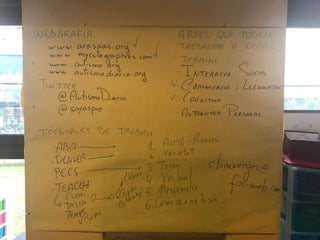 WEBGRAFIA
www.arasaac.org
www.mycutegraphics.com
www.autismo.org
www.autismodiario.org
TWITTER
@AutismoDiario
@soyaspie
ÀREES QUE PODEM
TREBALLAR A L'AULA
TERMINI
INTERACCIÓ SOCIAL
COMUNICACIÓ I LLENGUATGE
COGNITIVA
AUTONOMIA PERSONAL
TÈCNIQUES DE TREBALL
ABA
DENVER
PECS
TEACCH
ESPAI
TASCA
TEMPS
VISUAL
1.
2 Varietat
3 Triar
4 Verbal
5 Respondre
6